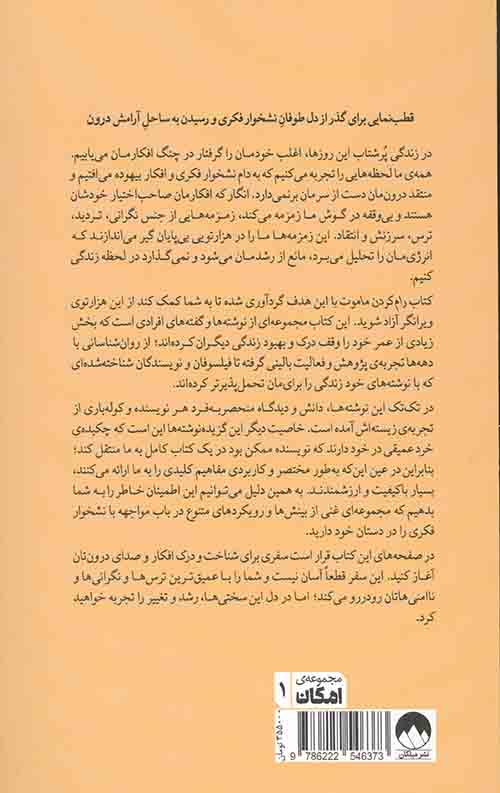 قطب‌نمایی برای گذر از دل طوفانِ نشخوار فکری و رسیدن به ساحلِ آرامش درون
در زندگی پُرشتاب این روزها، اغلب خودمان را گرفتار در چنگ افکارمان می‌یابیم.
همه‌ی ما لحظه‌هایی را تجربه می‌کنیم که به دام نشخوار فکری و افکار بیهوده می‌افتیم و
منتقد درون‌مان دست از سرمان برنمی‌دارد. انگار که افکارمان صاحب‌اختیار خودشان
هستند و بی‌وقفه در گوش ما زمزمه می‌کند، زمزمه‌هایی از جنس نگرانی، تردید،
ترس، سرزنش و انتقاد. این زمزمه‌ها ما را در هزارتویی بی‌پایان گیر می‌اندازند که
انرژی‌مان را تحلیل می‌برد، مانع از رشدمان می‌شود و نمی‌گذارد در لحظه زندگی
کنیم.
کتاب رام‌کردن ماموت با این هدف گردآوری شده تا به شما کمک کند از این هزارتوی
ویرانگر آزاد شوید. این کتاب مجموعه‌ای از نوشته‌ها و گفته‌های افرادی است که بخش
زیادی از عمر خود را وقف درک و بهبود زندگی دیگران کرده‌اند؛ از روان‌شناسانی با
دهه‌ها تجربه‌ی پژوهش و فعالیت بالینی گرفته تا فیلسوفان و نویسندگان شناخته‌شده‌ای
که با نوشته‌های خود زندگی را برای‌مان تحمل‌پذیرتر کرده‌اند.
در تک‌تک این نوشته‌ها، دانش و دیدگاه منحصربه‌فرد هر نویسنده و کوله‌باری از
تجربه‌ی زیسته‌اش آمده است. خاصیت دیگر این گزیده‌نوشته‌ها این است که چکیده‌ی
خرد عمیقی در خود دارند که نویسنده ممکن بود در یک کتاب کامل به ما منتقل کند؛
بنابراین در عین این‌که به‌طور مختصر و کاربردی مفاهیم کلیدی را به ما ارائه می‌کنند،
بسیار باکیفیت و ارزشمندند. به همین دلیل می‌توانیم این اطمینان خاطر را به شما
بدهیم که مجموعه‌ای غنی از بینش‌ها و رویکردهای متنوع در باب مواجهه با نشخوار
فکری را در دستان خود دارید.
در صفحه‌های این کتاب قرار است سفری برای شناخت و درک افکار و صدای درون‌تان
آغاز کنید. این سفر قطعاً آسان نیست و شما را با عمیق‌ترین ترس‌ها و نگرانی‌ها و
ناامنی‌هاتان رودررو می‌کند؛ اما در دل این سختی‌ها، رشد و تغییر را تجربه خواهید
کرد.
مجموعه‌ی
امکان
۱
۳۵۵۰۰۰ تومان
9 786222 546373
نشر میلکان